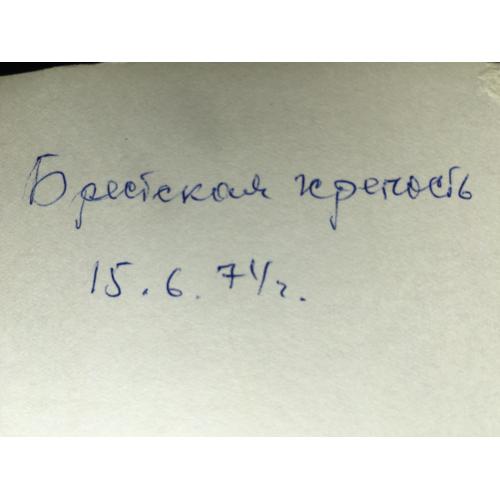 Брестская крепость
15.6.71/г.